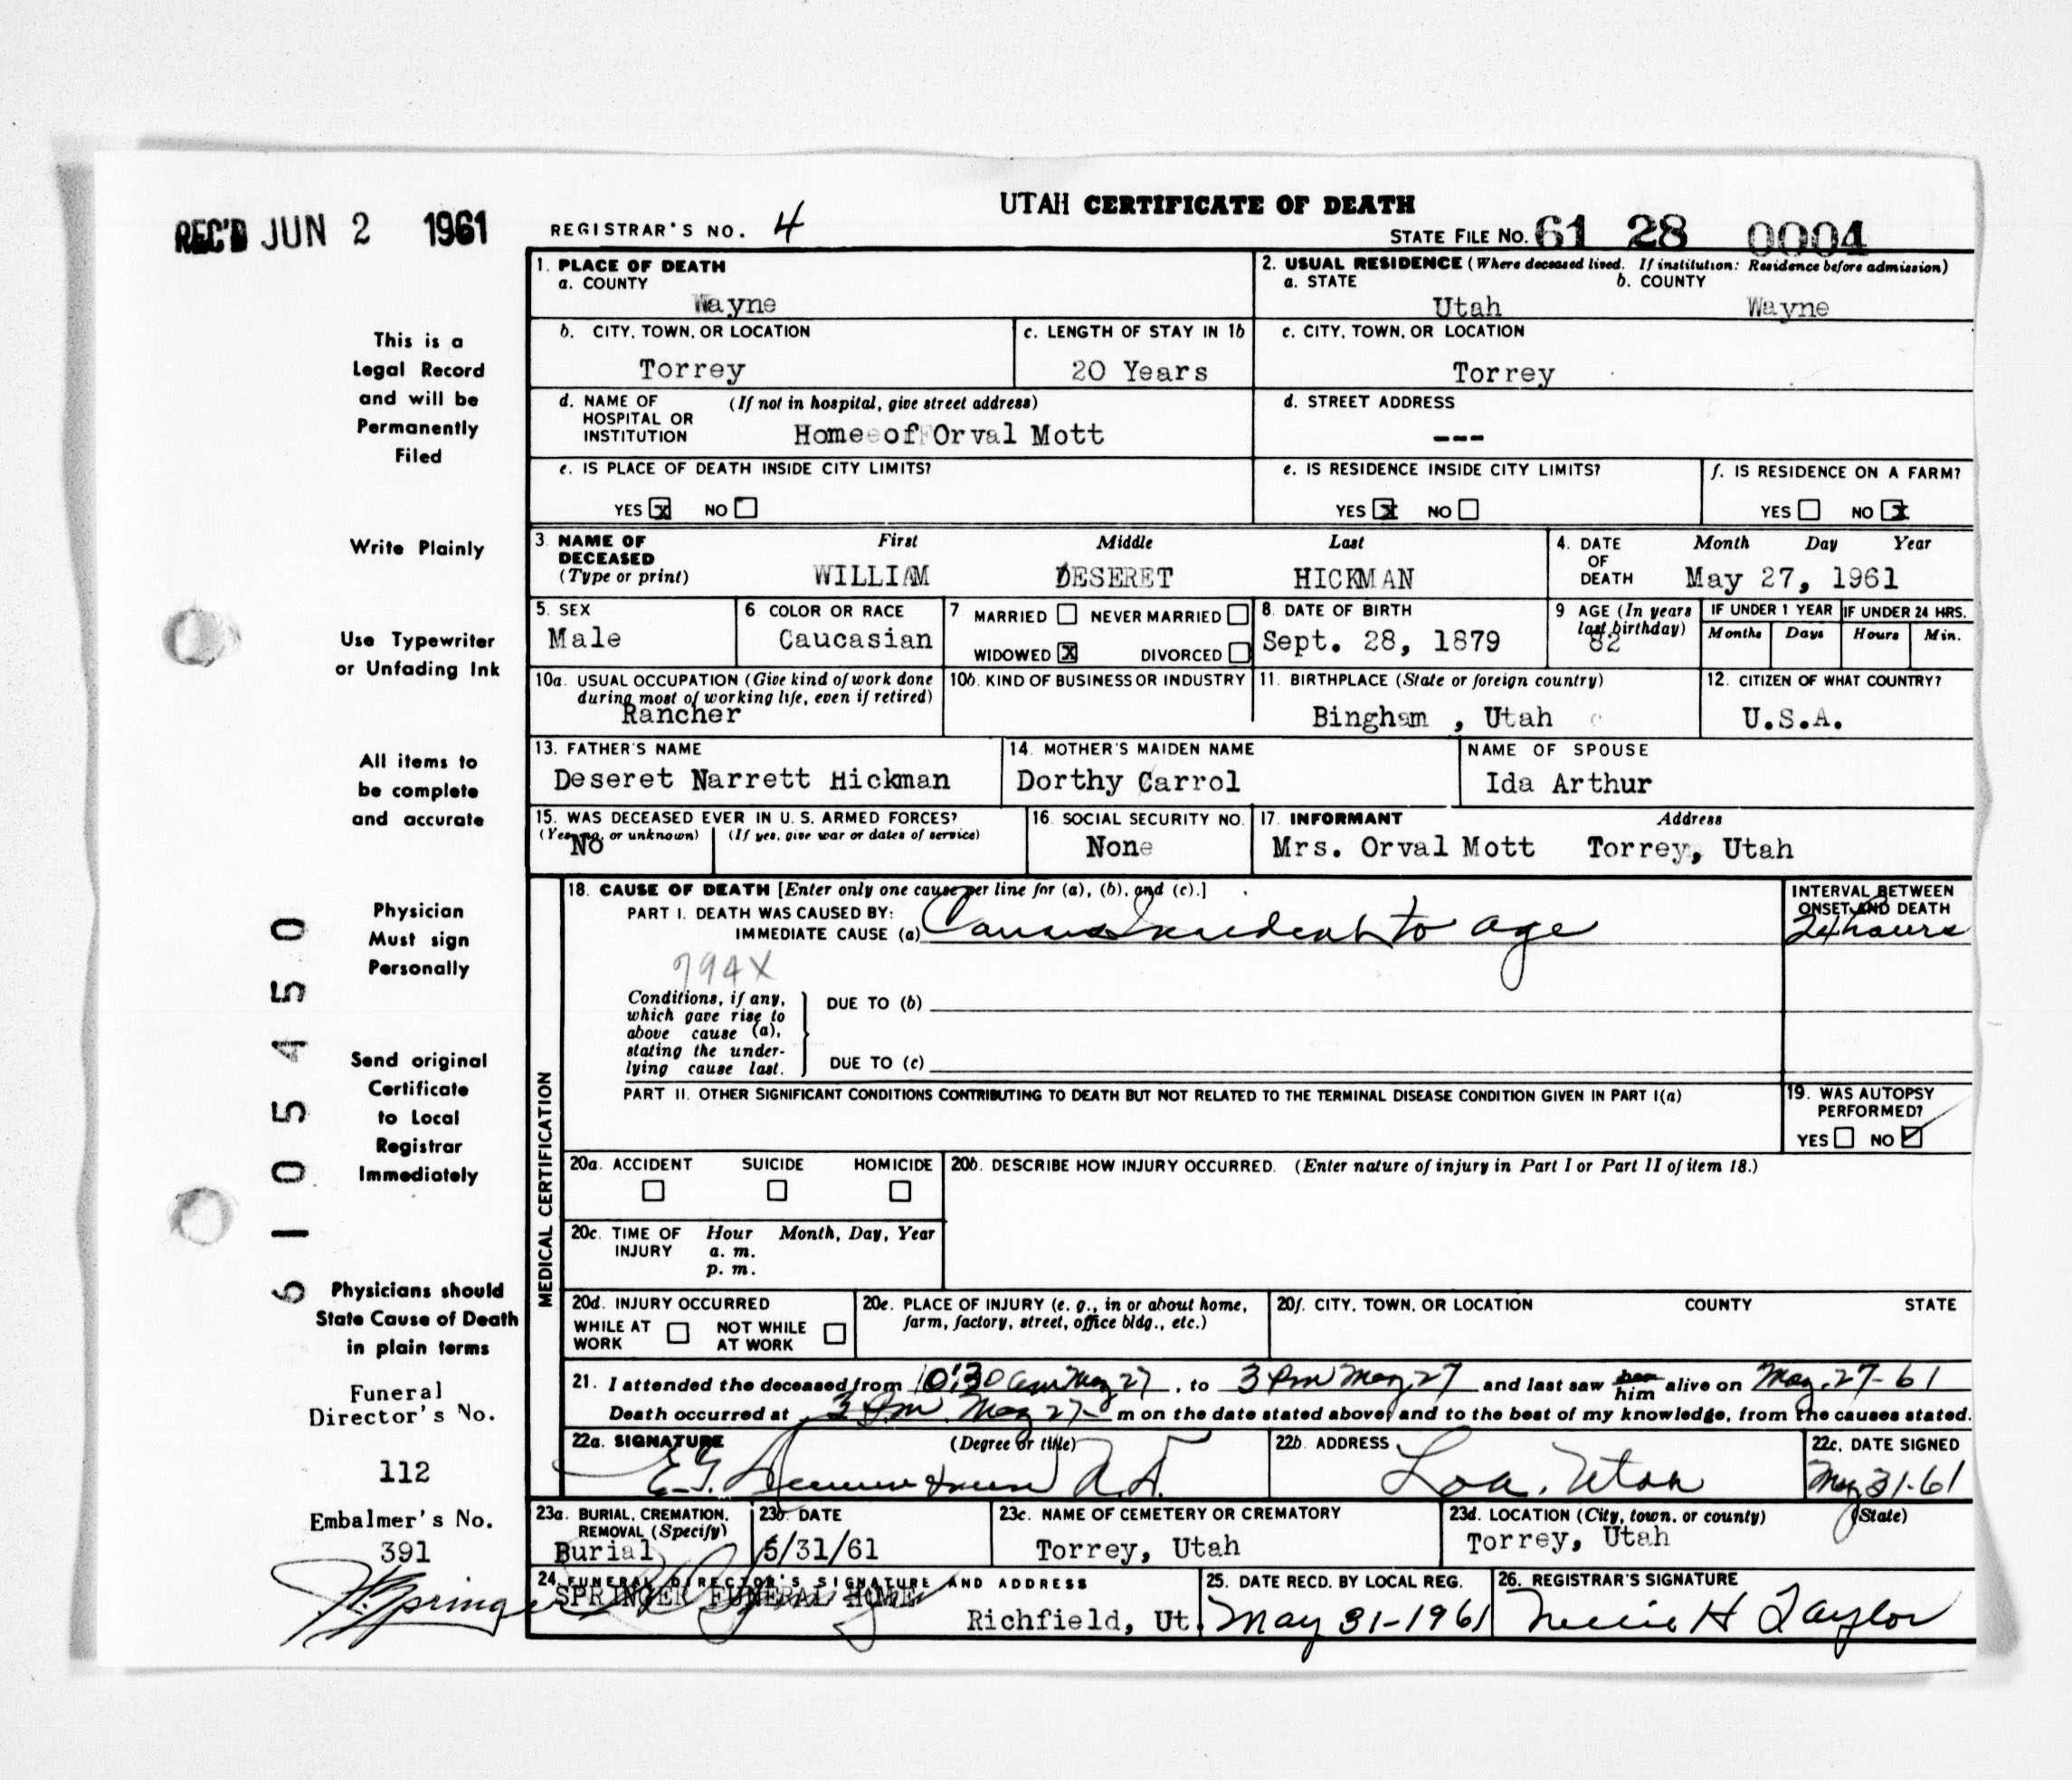 UTAH CERTIFICATE OF DEATH
REC'D JUN 2 1961
REGISTRAR'S NO. 4
STATE FILE NO. 61 28 0004
1. PLACE OF DEATH
a. COUNTY
Wayne
2. USUAL RESIDENCE (Where deceased lived. If institution: Residence before admission)
a. STATE b. COUNTY
Utah Wayne
b. CITY, TOWN, OR LOCATION
Torrey
c. LENGTH OF STAY IN 1b
20 Years
c. CITY, TOWN, OR LOCATION
Torrey
d. NAME OF HOSPITAL OR INSTITUTION (If not in hospital, give street address)
Home of Orval Mott
d. STREET ADDRESS
---
e. IS PLACE OF DEATH INSIDE CITY LIMITS?
YES x NO
e. IS RESIDENCE INSIDE CITY LIMITS?
YES x NO
f. IS RESIDENCE ON A FARM?
YES NO x
3. NAME OF DECEASED (Type or print)
First Middle Last
WILLIAM DESERET HICKMAN
4. DATE OF DEATH
Month Day Year
May 27, 1961
5. SEX
Male
6. COLOR OR RACE
Caucasian
7. MARRIED NEVER MARRIED
WIDOWED X DIVORCED
8. DATE OF BIRTH
Sept. 28, 1879
9 AGE (In years last birthday)
82
IF UNDER 1 YEAR IF UNDER 24 HRS.
Months Days Hours Min.
10a. USUAL OCCUPATION (Give kind of work done during most of working life, even if retired)
Rancher
10b. KIND OF BUSINESS OR INDUSTRY
11. BIRTHPLACE (State or foreign country)
Bingham , Utah
12. CITIZEN OF WHAT COUNTRY?
U.S.A.
13. FATHER'S NAME
Deseret Narrett Hickman
14. MOTHER'S MAIDEN NAME
Dorthy Carrol
NAME OF SPOUSE
Ida Arthur
15. WAS DECEASED EVER IN U. S. ARMED FORCES?
(Yes, no, or unknown) (If yes, give war or dates of service)
No
16. SOCIAL SECURITY NO.
None
17. INFORMANT Address
Mrs. Orval Mott Torrey, Utah
MEDICAL CERTIFICATION
18. CAUSE OF DEATH [Enter only one cause per line for (a), (b), and (c).]
PART I. DEATH WAS CAUSED BY:
IMMEDIATE CAUSE (a) Causes Incident to age
INTERVAL BETWEEN ONSET AND DEATH
24 hours
794X
Conditions, if any, which gave rise to above cause (a), stating the underlying cause last.
DUE TO (b)
DUE TO (c)
PART II. OTHER SIGNIFICANT CONDITIONS CONTRIBUTING TO DEATH BUT NOT RELATED TO THE TERMINAL DISEASE CONDITION GIVEN IN PART I(a)
19. WAS AUTOPSY PERFORMED?
YES NO
20a. ACCIDENT SUICIDE HOMICIDE
20b. DESCRIBE HOW INJURY OCCURRED. (Enter nature of injury in Part I or Part II of item 18.)
20c. TIME OF INJURY Hour Month, Day, Year
a. m.
p. m.
20d. INJURY OCCURRED
WHILE AT WORK NOT WHILE AT WORK
20e. PLACE OF INJURY (e. g., in or about home, farm, factory, street, office bldg., etc.)
20f. CITY, TOWN, OR LOCATION COUNTY STATE
21. I attended the deceased from 10:30 am May 27, to 3 Pm May 27 and last saw her him alive on May. 27-61
Death occurred at 3 Pm May 27- m on the date stated above; and to the best of my knowledge, from the causes stated.
22a. SIGNATURE (Degree or title)
22b. ADDRESS
Loa, Utah
22c. DATE SIGNED
May 31-61
23a. BURIAL, CREMATION, REMOVAL (Specify)
Burial
23b. DATE
5/31/61
23c. NAME OF CEMETERY OR CREMATORY
Torrey, Utah
23d. LOCATION (City, town, or county) (State)
Torrey, Utah
24. FUNERAL DIRECTOR'S SIGNATURE AND ADDRESS
SPRINGER FUNERAL HOME
Richfield, Ut.
25. DATE RECD. BY LOCAL REG.
May 31-1961
26. REGISTRAR'S SIGNATURE
H Taylor
This is a
Legal Record
and will be
Permanently
Filed
Write Plainly
Use Typewriter
or Unfading Ink
All items to
be complete
and accurate
Physician
Must sign
Personally
Send original
Certificate
to Local
Registrar
Immediately
Physicians should
State Cause of Death
in plain terms
Funeral
Director's No.
112
Embalmer's No.
391
Springer
61055450